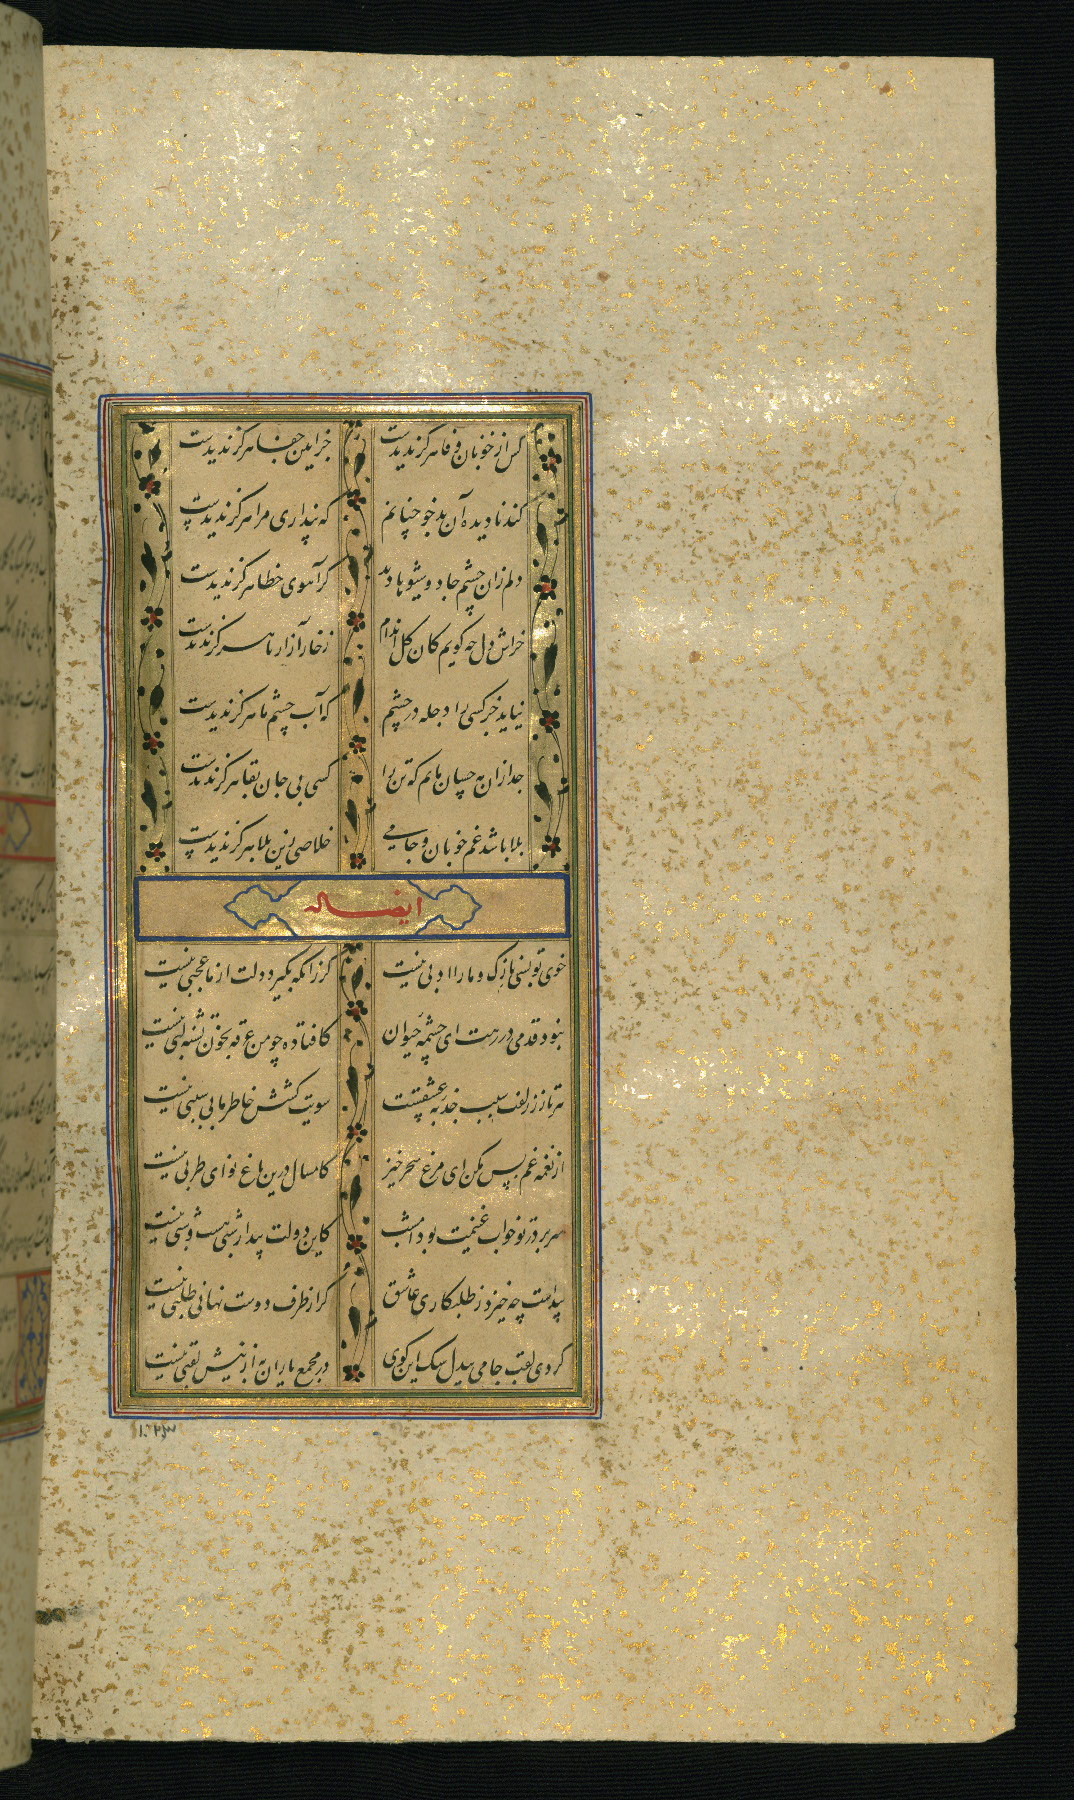 کس از خوبان وفا هرگز ندیدست جز این جفا هرگز ندیدست
کند نادیده آن بدخو چنانم که پنداری مرا هرگز ندیدست
دلم زان چشم جادو شیوها دید کز آهوی خطا هرگز ندیدست
خراش دل چه گویم کان گل اندام ز خار آزار پا هرگز ندیدست
نیاید جز کسی را دجله در چشم که آب چشم ما هرگز ندیدست
جدا زان مه چسان مانم که تن را کسی بی جان بقا هرگز ندیدست
بلا باشد غم خوبان و جامی خلاصی زین بلا هرگز ندیدست
ایضا له
خوی تو بسی نازک و ما را ادبی نیست گر زانکه بگیرد دولت از ما عجبی نیست
ننهد قدمی در رهت ای چشمه حیوان کافتاده چو من غرقه بخون تشنه لبی نیست
هر تار ز زلفت سبب جذبه عشقست سویت کشش خاطر ما بی سببی نیست
از نغمه غم بس مکن ای مرغ سحر خیز کامسال درین باغ نوای طربی نیست
سر بر در تو خواب غنیمت بود امشب کاین دولت بیدار شبی هست و شبی نیست
پیداست چه خیزد ز طلبکاری عاشق گر از طرف دوست نهانی طلبی نیست
کردی لقب جامی بیدل سگ این کوی در مجمع یاران به ازینش لقبی نیست